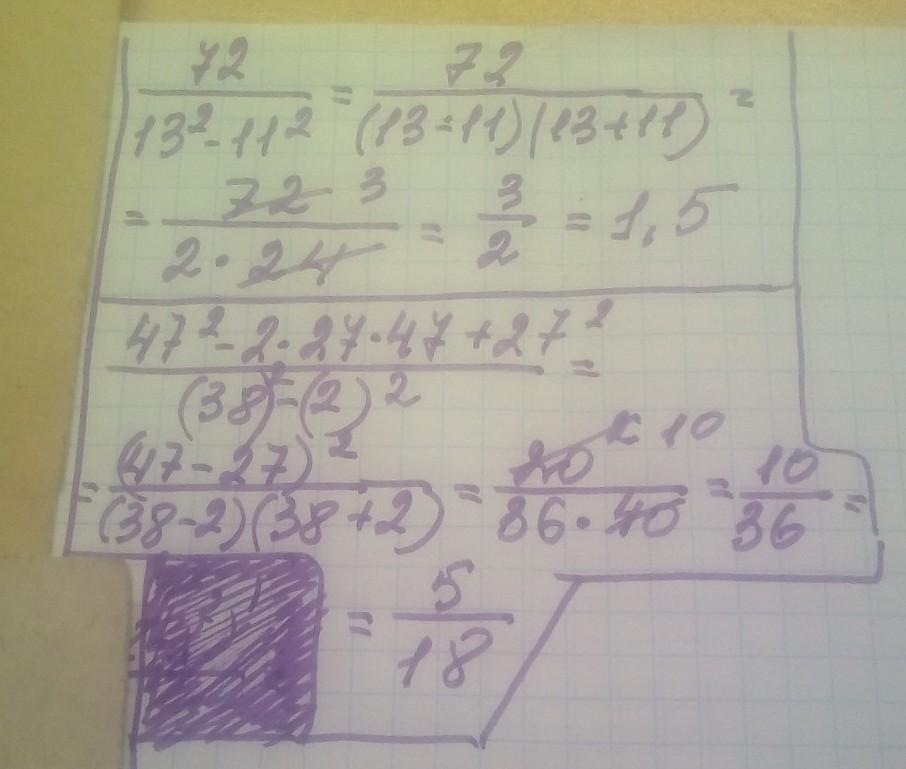 72 / 13² - 11² = 72 / (13-11)(13+11) =
= 72 3 / 2 · 24 = 3 / 2 = 1,5
47² - 2 · 27 · 47 + 27² / (38)² - (2)² =
= (47 - 27)² / (38-2)(38+2) = 20² 10 / 36 · 40 = 10 / 36 =
= 5 / 18